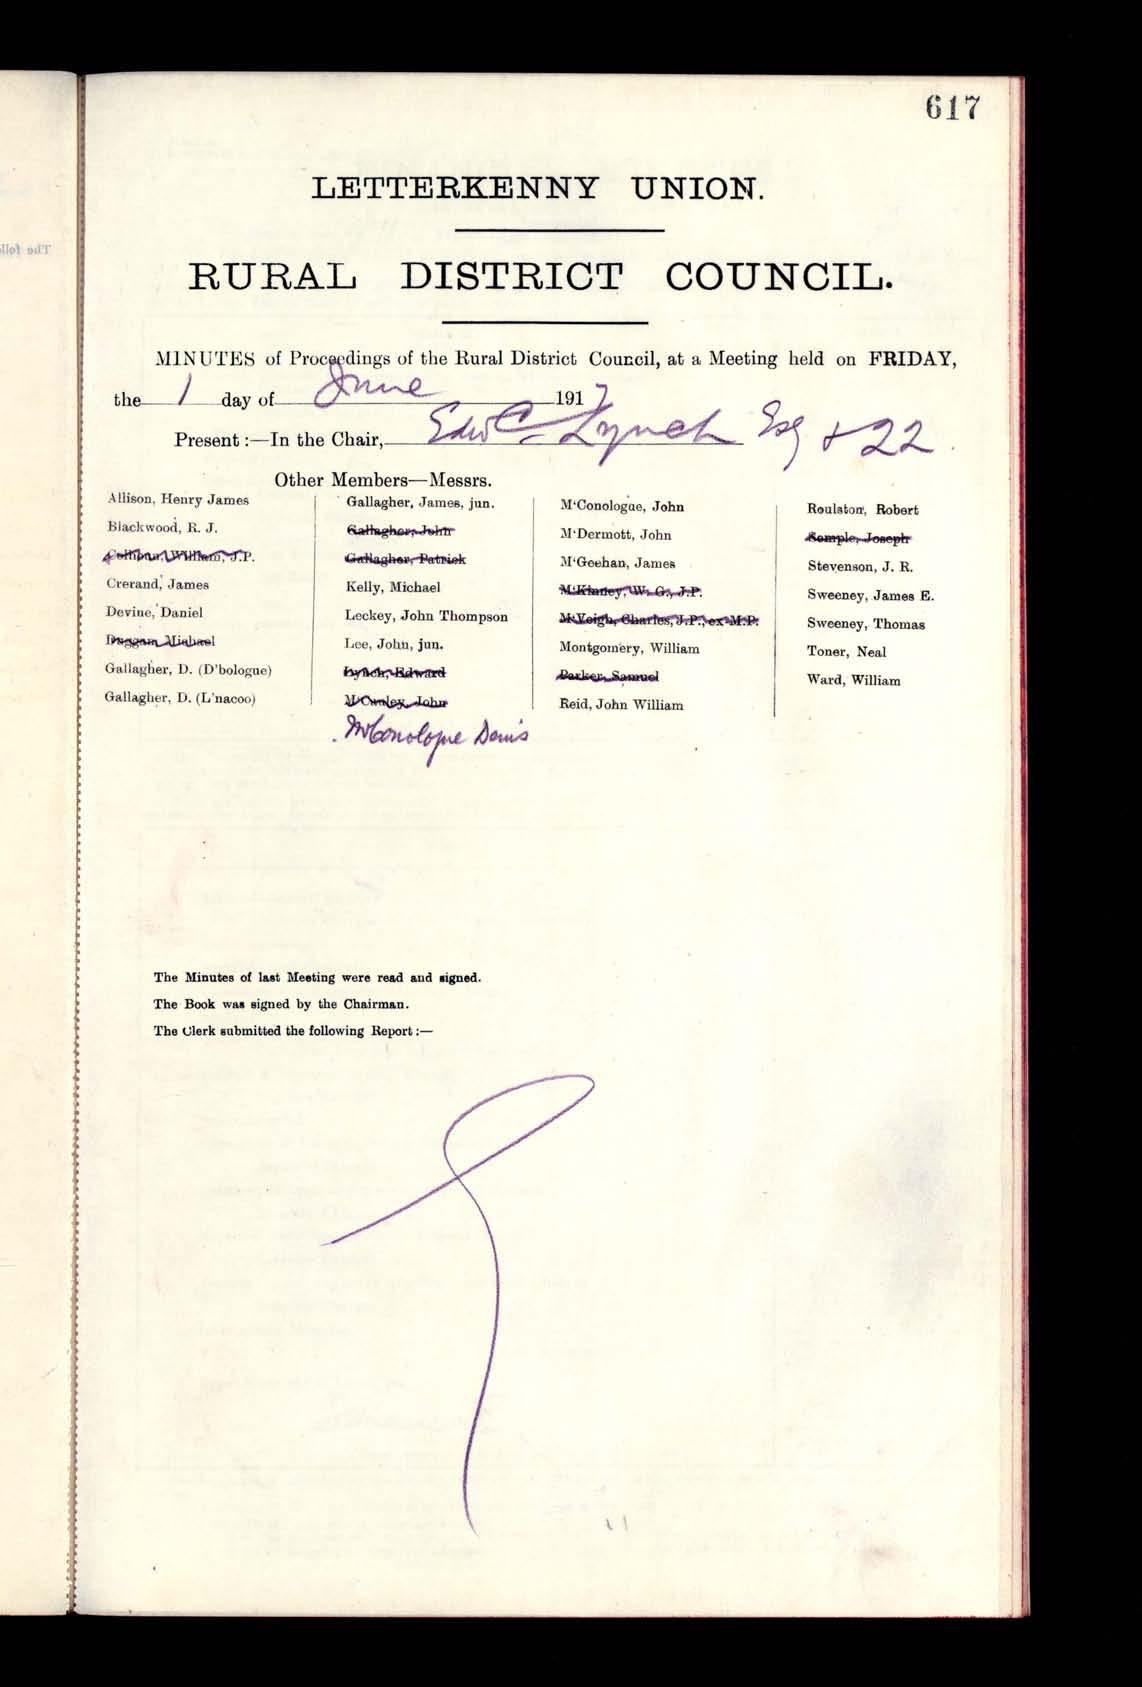 617
LETTERKENNY UNION.
RURAL DISTRICT COUNCIL.
MINUTES of Proceedings of the Rural District Council, at a Meeting held on FRIDAY,
the 1 day of June 1917
Present :—In the Chair, Edw C. Lynch Esq + 22
Other Members—Messrs.
Allison, Henry James
Blackwood, R. J.
Callibun, William, J.P.
Crerand, James
Devine, Daniel
Duggan, Michael
Gallagher, D. (D'bologue)
Gallagher, D. (L'nacoo)
Gallagher, James, jun.
Gallagher, John
Gallagher, Patrick
Kelly, Michael
Leckey, John Thompson
Lee, John, jun.
Lynch, Edward
M'Cauley, John
McConologue Denis
M'Conologue, John
M'Dermott, John
M'Geehan, James
M'Kinney, W. G., J.P.
M'Veigh, Charles, J.P., ex-M.P.
Montgomery, William
Parker, Samuel
Reid, John William
Roulston, Robert
Semple, Joseph
Stevenson, J. R.
Sweeney, James E.
Sweeney, Thomas
Toner, Neal
Ward, William
The Minutes of last Meeting were read and signed.
The Book was signed by the Chairman.
The Clerk submitted the following Report :—